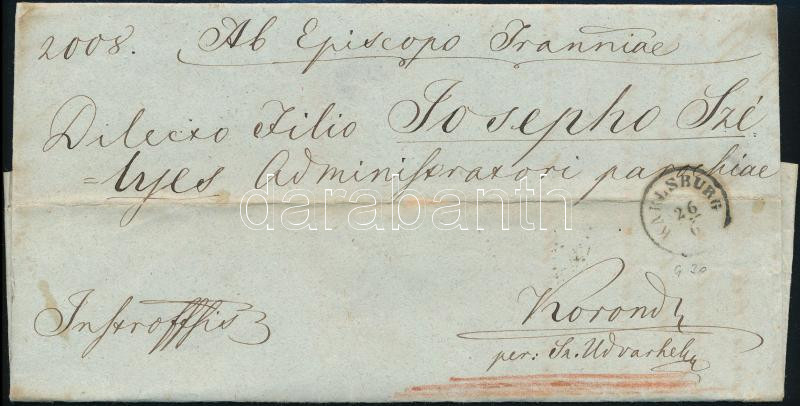 2008. Ab Episcopo Tranniae
Dilecto Filio Josepho Szé
=lyes Administratori parochiae
darabanth
KARLSBURG
26
6
G 20
Korond
per: Sz. Udvarhely